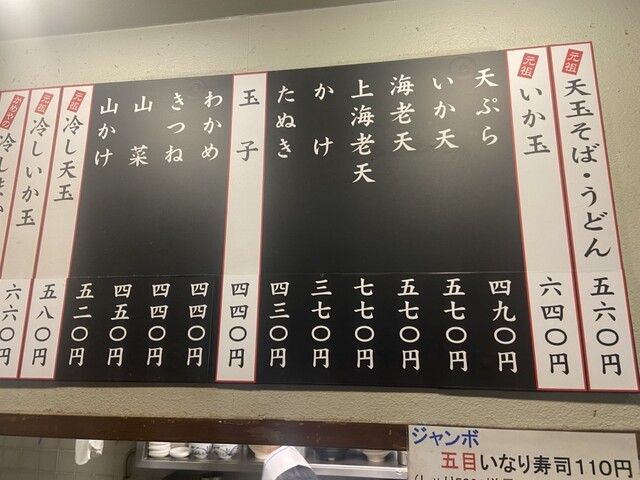 元祖
天玉そば・うどん
五六〇円
元祖
いか玉
六四〇円
天ぷら
四九〇円
いか天
五七〇円
海老天
五七〇円
上海老天
七七〇円
かけ
三七〇円
たぬき
四三〇円
玉子
四四〇円
わかめ
四四〇円
きつね
四四〇円
山菜
四五〇円
山かけ
五二〇円
元祖
冷し天玉
五八〇円
元祖
冷しいか玉
六六〇円
かめやの
冷し
ジャンボ
五目いなり寿司110円